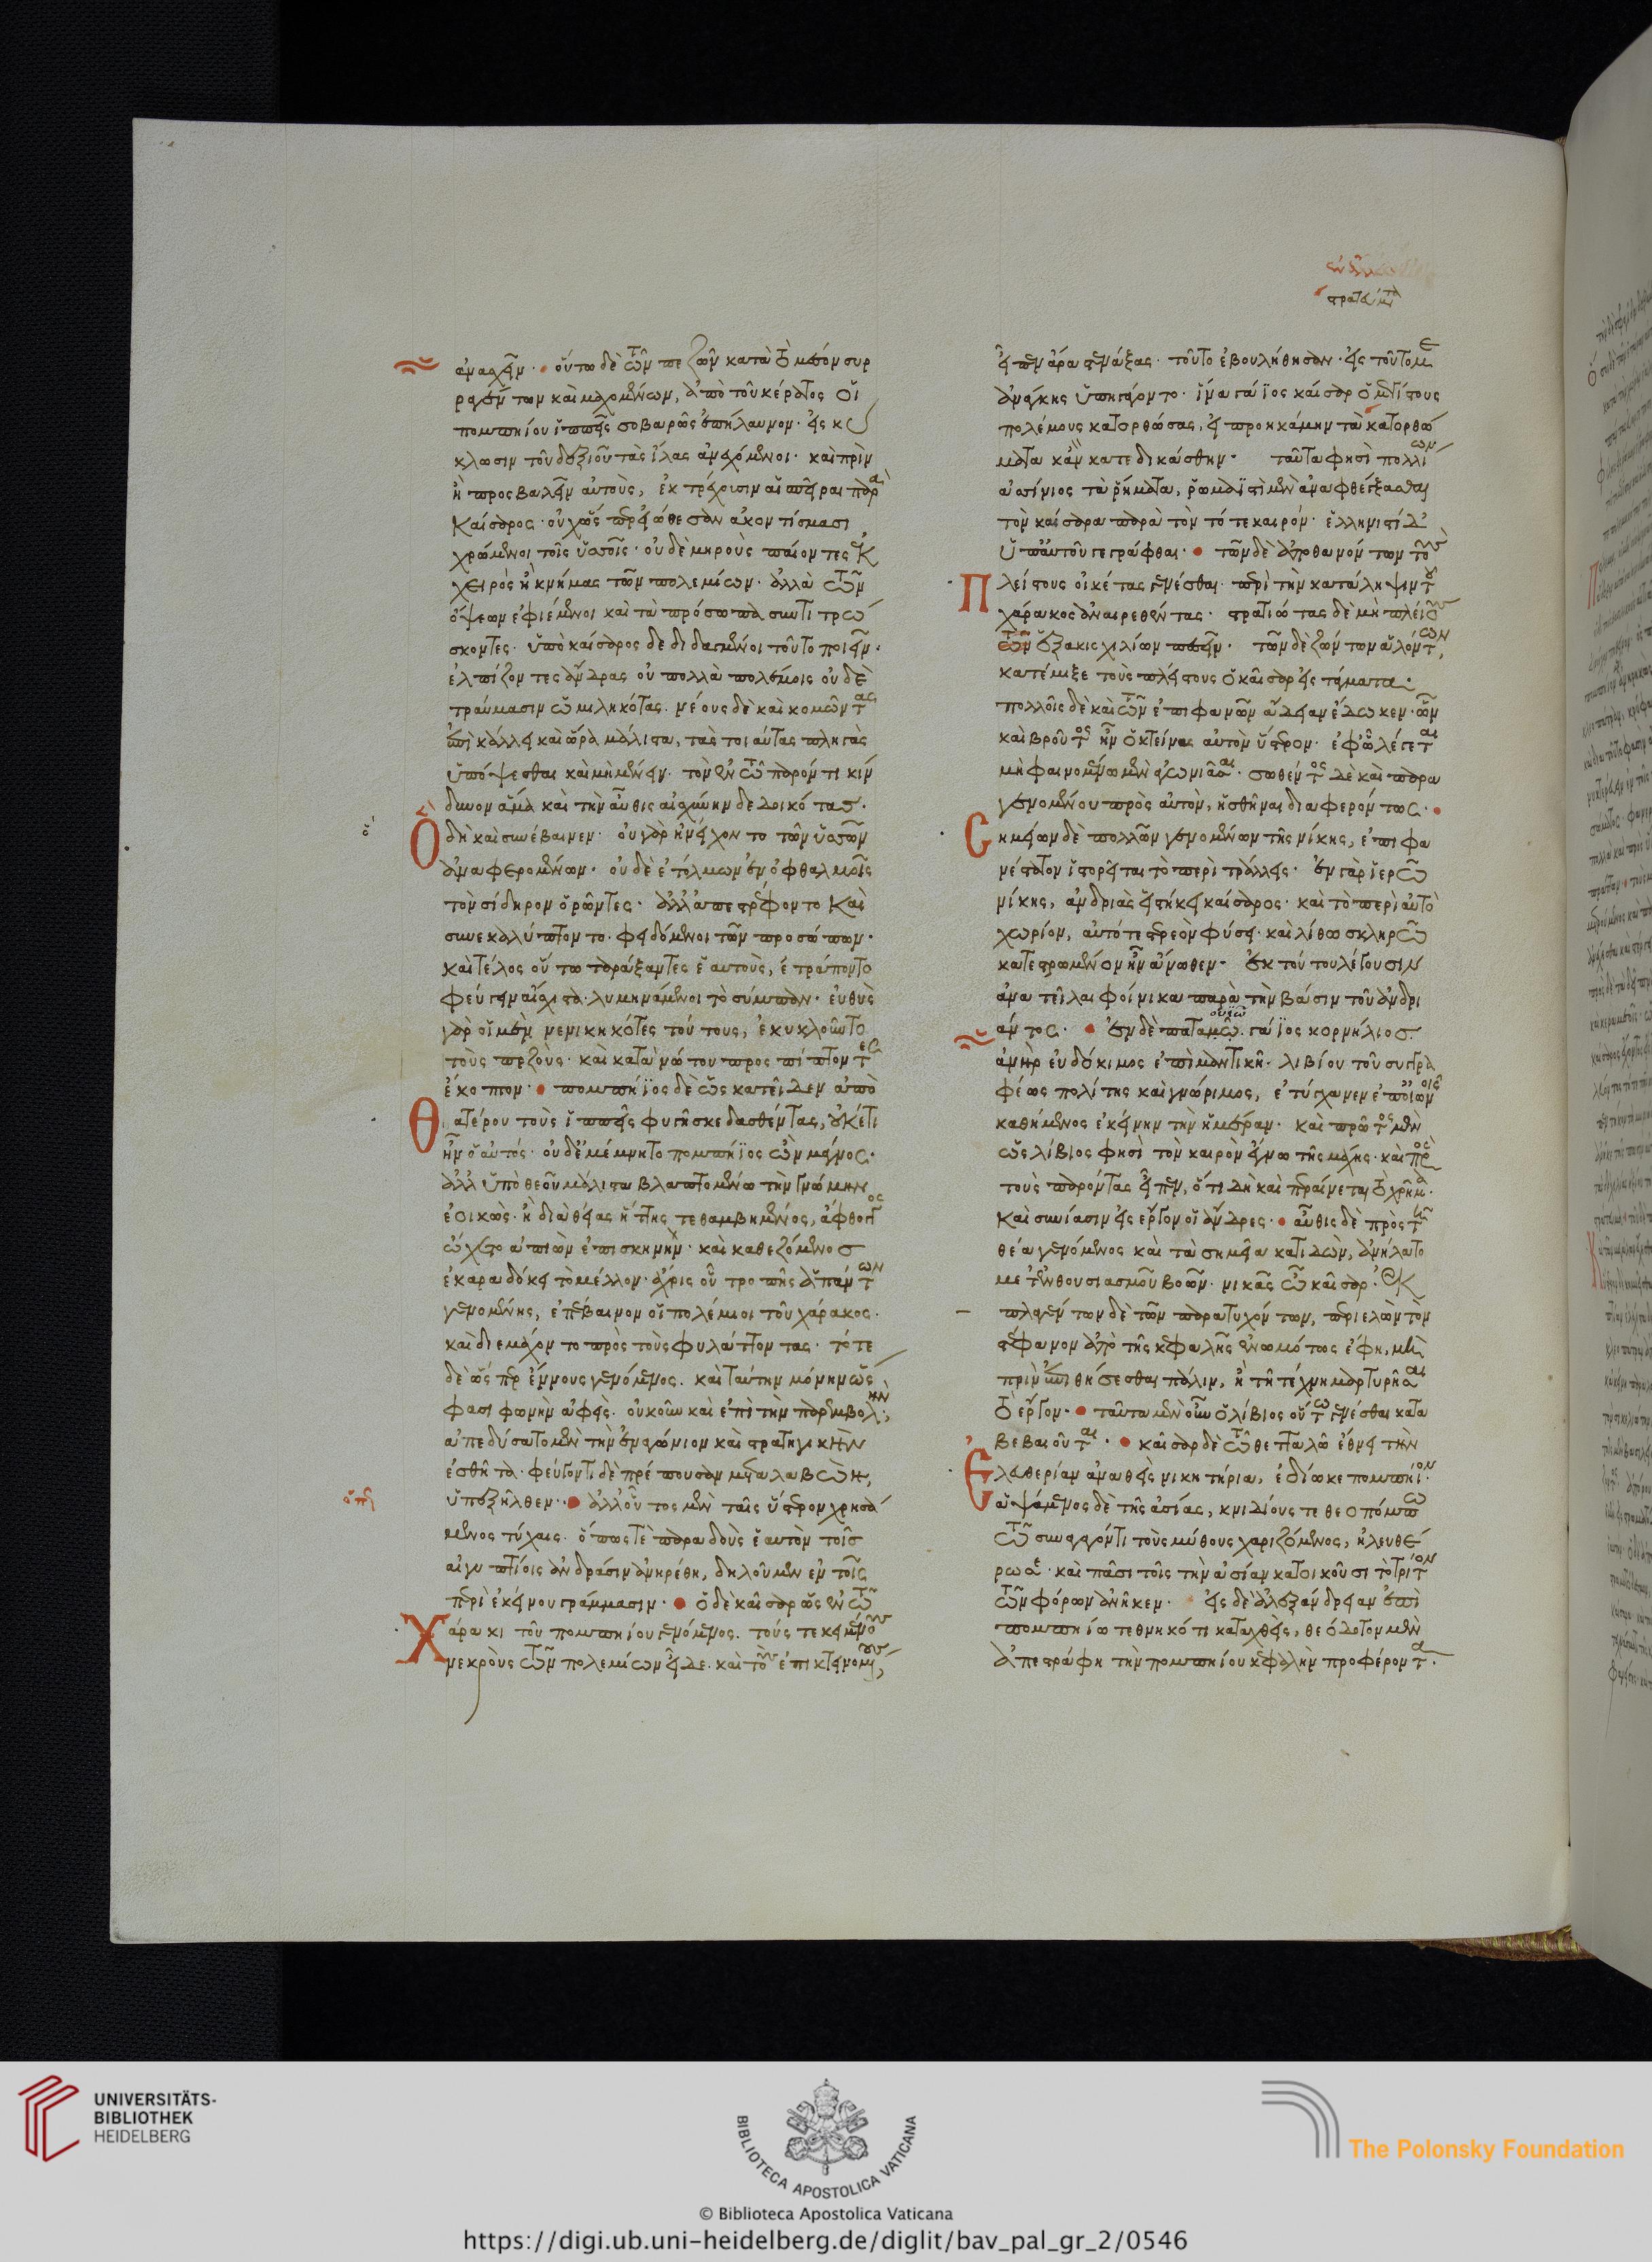 ἀνασχεῖν. οὕτω δὲ τῶν πεζῶν κατὰ τὸ μέσον συρ
ραγέντων καὶ μαχομένων, ἀπὸ τοῦ κέρατος οἱ
πομπηίου ἱππεῖς σοβαρῶς ἐπήλαυνον. εἰς κύ
κλωσιν τοῦ δεξιοῦ τὰς ἴλας ἀναχεόμενοι. καὶ πρὶν
ἢ προσβαλεῖν αὐτοὺς, ἐκτρέχουσιν αἱ σπεῖραι παρὰ
Καίσαρος. οὐχ ὥσπερ εἰώθεσαν ἀκοντίσμασι
χρώμενοι τοῖς ὑσσοῖς. οὐδὲ μηροὺς παίοντες ἐκ
χειρὸς ἢ κνήμας τῶν πολεμίων. ἀλλὰ τῶν
ὄψεων ἐφιέμενοι καὶ τὰ πρόσωπα συντιτρώ
σκοντες. ὑπὸ καίσαρος δεδιδαγμένοι τοῦτο ποιεῖν.
ἐλπίζοντες ἄνδρας οὐ πολλὰ πολέμοις οὐδὲ
τραύμασιν ὡμιληκότας. νέους δὲ καὶ κομῶντας
ἐπὶ κάλλει καὶ ὥρα μάλιστα, τὰς τοιαύτας πληγὰς
ὑπόψεσθαι καὶ μὴ μενεῖν. τὸν ἐν τῷ παρόντι κίν
δυνον ἅμα καὶ τὴν αὖθις αἰσχύνην δεδοικότας.
Ὃ δὴ καὶ συνέβαινεν. οὐ γὰρ ἠνείχοντο τῶν ὑσσῶν
ἀναφερομένων. οὐδὲ ἐτόλμων ἐν ὀφθαλμοῖς
τὸν σίδηρον ὁρῶντες. ἀλλἀπεστρέφοντο καὶ
συνεκαλύπτοντο. φειδόμενοι τῶν προσώπων.
καὶ τέλος οὕτω ταράξαντες ἑαυτοὺς, ἐτράποντο
φεύγειν αἴσχιστα. λυμηνάμενοι τὸ σύμπαν. εὐθὺς
γὰρ οἱ μὲν νενικηκότες τούτους, ἐκυκλοῦντο
τοὺς πεζοὺς. καὶ κατὰ νώτου προσπίπτοντες
ἔκοπτον. πομπήϊος δὲ ὡς κατεῖδεν ἀπὸ
Θατέρου τοὺς ἱππεῖς φυγῇ σκεδασθέντας, οὐκέτι
ἦν ὁ αὐτός. οὐδἐμέμνητο πομπήϊος ὢν μάγνος.
ἀλλ ὑπὸ θεοῦ μάλιστα βλαπτομένω τὴν γνώμην
ἐοικὼς. ἢ διὰ θείας ἥττης τεθαμβημένος, ἄφθογγος
ᾤχετο ἀπιὼν ἐπὶ σκηνὴν. καὶ καθεζόμενος
ἐκαραδόκει τὸ μέλλον. ἄχρις οὗ τροπῆς ἁπάντων
γενομένης, ἐπέβαινον οἱ πολέμιοι τοῦ χάρακος.
καὶ διεμάχοντο πρὸς τοὺς φυλάττοντας. τότε
δὲ ὥσπερ ἔννους γενόμενος. καὶ ταύτην μόνην ὥς
φασι φωνὴν ἀφεὶς. οὐκοῦν καὶ ἐπὶ τὴν παρεμβολήν;
ἀπεδύσατο μὲν τὴν ἐναγώνιον καὶ στρατηγικὴν
ἐσθῆτα. φεύγοντι δὲ πρέπουσαν μεταλαβὼν,
ὑπεξῆλθεν. ἀλλοὗτος μὲν ταῖς ὕστερον χρησά
μενος τύχαις. ὅπως τὲ παραδοὺς ἑαυτὸν τοῖς
αἰγυπτίοις ἀνδράσιν ἀνηρέθη, δηλοῦμεν ἐν τοῖς
περὶ ἐκείνου γράμμασιν. ὁ δὲ καῖσαρ ὡς ἐν τῷ
Χάρακι τοῦ πομπηίου γενόμενος. τούς τε κειμένους
νεκροὺς τῶν πολεμίων εἶδε. καὶ τοὺς ἔτι κτεινομένους,
εἶπεν ἄρα στενάξας. τοῦτο ἐβουλήθησαν. εἰς τοῦτό με
ἀνάγκης ὑπηγάγοντο. ἵνα γάϊος καῖσαρ ὁ μεγίστους
πολέμους κατορθώσας, εἰ προηκάμην τὰ κατορθώ
ματα κἂν κατεδικάσθην. ταῦτα φησὶ πολλίων
ἀσίνιος τὰ ῥήματα, ῥωμαϊστὶ μὲν ἀναφθέγξασθαι
τὸν καίσαρα παρὰ τὸν τότε καιρόν. ἑλληνιστὶ δ'
ὑπαὐτοῦ γεγράφθαι. τῶν δὲ ἀποθανόντων τοὺς
Πλείστους οἰκέτας γενέσθαι. περὶ τὴν κατάληψιν τοῦ
χάρακος ἀναιρεθέντας. στρατιώτας δὲ μὴ πλείους
τῶν ἑξακισχιλίων πεσεῖν. τῶν δὲ ζώντων ἁλόντων,
κατέμιξε τοὺς πλείστους ὁ καῖσαρ εἰς τάγματα.
πολλοῖς δὲ καὶ τῶν ἐπιφανῶν ἄδειαν ἔδωκεν. ὧν
καὶ βροῦτος ἦν ὁ κτείνας αὐτὸν ὕστερον. ἐφᾧ λέγεται
μὴ φαινομένω μὲν ἀγωνιᾶσαι. σωθέντος δὲ καὶ παρα
γενομένου πρὸς αὐτὸν, ἡσθῆναι διαφερόντως.
Σημείων δὲ πολλῶν γενομένων τῆς νίκης, ἐπιφα
νέστατον ἱστορεῖται τὸ περὶ τράλλεις. ἐν γὰρ ἱερῷ
νίκης, ἀνδριὰς εἱστήκει καίσαρος. καὶ τὸ περὶ αὐτὸ
χωρίον, αὐτό τε στερεὸν φύσει. καὶ λίθω σκληρῷ
κατεστρωμένον ἦν ἄνωθεν. ἐκ τούτου λέγουσιν
ἀνατεῖλαι φοίνικα παρὰ τὴν βάσιν τοῦ ἀνδρι
άντος. ἐν δὲ παταμῶ. γάϊος κορνήλιος.
ἀνὴρ εὐδόκιμος ἐπὶ μαντικῆ. λιβίου τοῦ συγγρα
φέως πολίτης καὶ γνώριμος, ἐτύγχανεν ἐποἰωνοῖς
καθήμενος ἐκείνην τὴν ἡμέραν. καὶ πρῶτος μὲν
ὡς λίβιος φησὶ τὸν καιρὸν ἔγνω τῆς μάχης. καὶ πρὸς
τοὺς παρόντας εἶπεν, ὅτι δὴ καὶ περαίνεται τὸ χρῆμα.
καὶ συνίασιν εἰς ἔργον οἱ ἄνδρες. αὖθις δὲ πρὸς τῇ
θέα γενόμενος καὶ τὰ σημεῖα κατιδὼν, ἀνήλατο
μετἐνθουσιασμοῦ βοῶν. νικᾶς ὦ καῖσαρ. ἐκ
πλαγέντων δὲ τῶν παρατυχόντων, περιελὼν τὸν
στέφανον ἀπὸ τῆς κεφαλῆς ἐνωμότως ἔφη, μὴ
πρὶν ἐπιθήσεσθαι πάλιν, ἢ τῆ τέχνη μαρτυρῆσαι
τὸ ἔργον. ταῦτα μὲν οὖν ὁ λίβιος οὕτω γενέσθαι κατα
βεβαιοῦται. καῖσαρ δὲ τῷ θετταλῶ ἔθνει τὴν
Ἐλευθερίαν ἀναθεὶς νικητήρια, ἐδίωκε πομπήιον.
ἁψάμενος δὲ τῆς ἀσίας, κνιδίους τε θεοπόμπω
τῷ συναγαγόντι τοὺς μύθους χαριζόμενος, ἠλευθέ
ρωσε. καὶ πᾶσι τοῖς τὴν ἀσίαν κατοικοῦσι τὸ τρίτον
τῶν φόρων ἀνῆκεν. εἰς δὲ ἀλεξάνδρειαν ἐπὶ
πομπηίω τεθνηκότι καταχθεὶς, θεόδοτον μὲν
ἀπεστράφη τὴν πομπηίου κεφαλὴν προφέροντα.
UNIVERSITÄTS-
BIBLIOTHEK
HEIDELBERG
BIBLIOTECA APOSTOLICA VATICANA
The Polonsky Foundation
© Biblioteca Apostolica Vaticana
https://digi.ub.uni-heidelberg.de/diglit/bav_pal_gr_2/0546